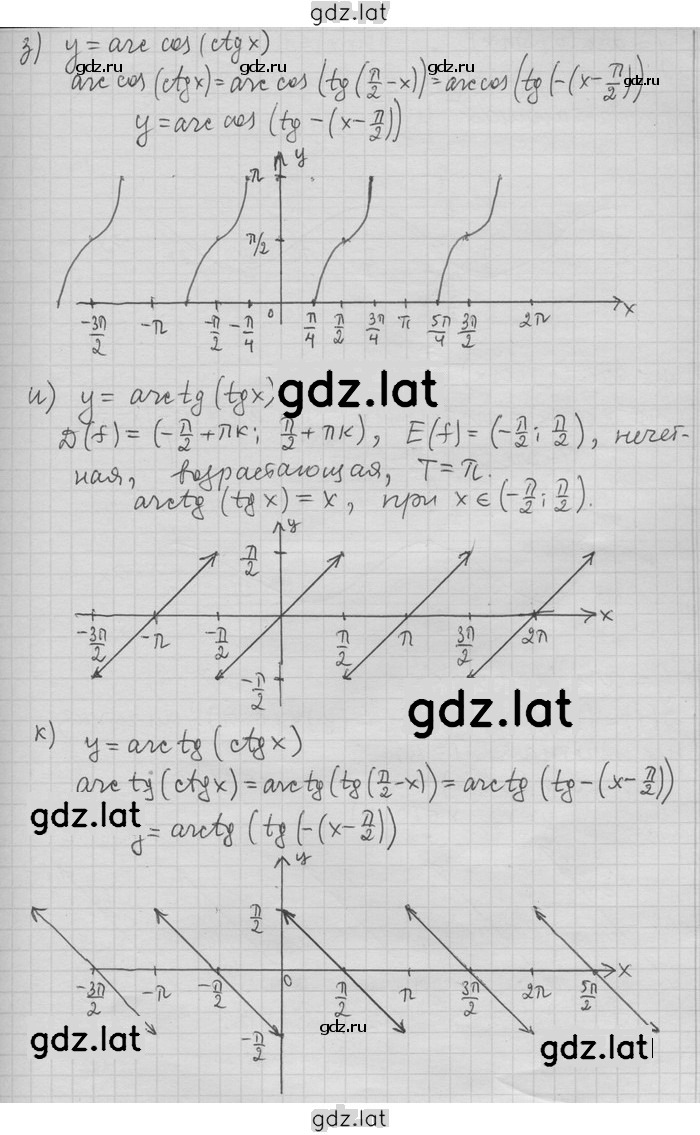 gdz.lat
з) y = arc cos (ctg x)
gdz.ru gdz.ru gdz.ru
arc cos (ctg x) = arc cos (tg (π/2 - x)) = arc cos (tg (-(x - π/2)))
y = arc cos (tg -(x - π/2))
y
π
π/2
-3π/2 -π -π/2 -π/4 0 π/4 π/2 3π/4 π 5π/4 3π/2 2π x
и) y = arctg (tg x)
gdz.lat
D(f) = (-π/2 + πк; π/2 + πк), E(f) = (-π/2; π/2), нечет-
ная, возрастающая, T = π.
arctg (tg x) = x, при x ∈ (-π/2; π/2).
y
π/2
-3π/2 -π -π/2 π/2 π 3π/2 2π x
-π/2
gdz.lat
к) y = arc tg (ctg x)
arc tg (ctg x) = arctg (tg (π/2 - x)) = arctg (tg -(x - π/2))
gdz.lat
y = arctg (tg (-(x - π/2))
y
π/2
-3π/2 -π -π/2 0 π/2 π 3π/2 2π 5π/2 x
-π/2
gdz.lat gdz.ru gdz.lat
gdz.lat